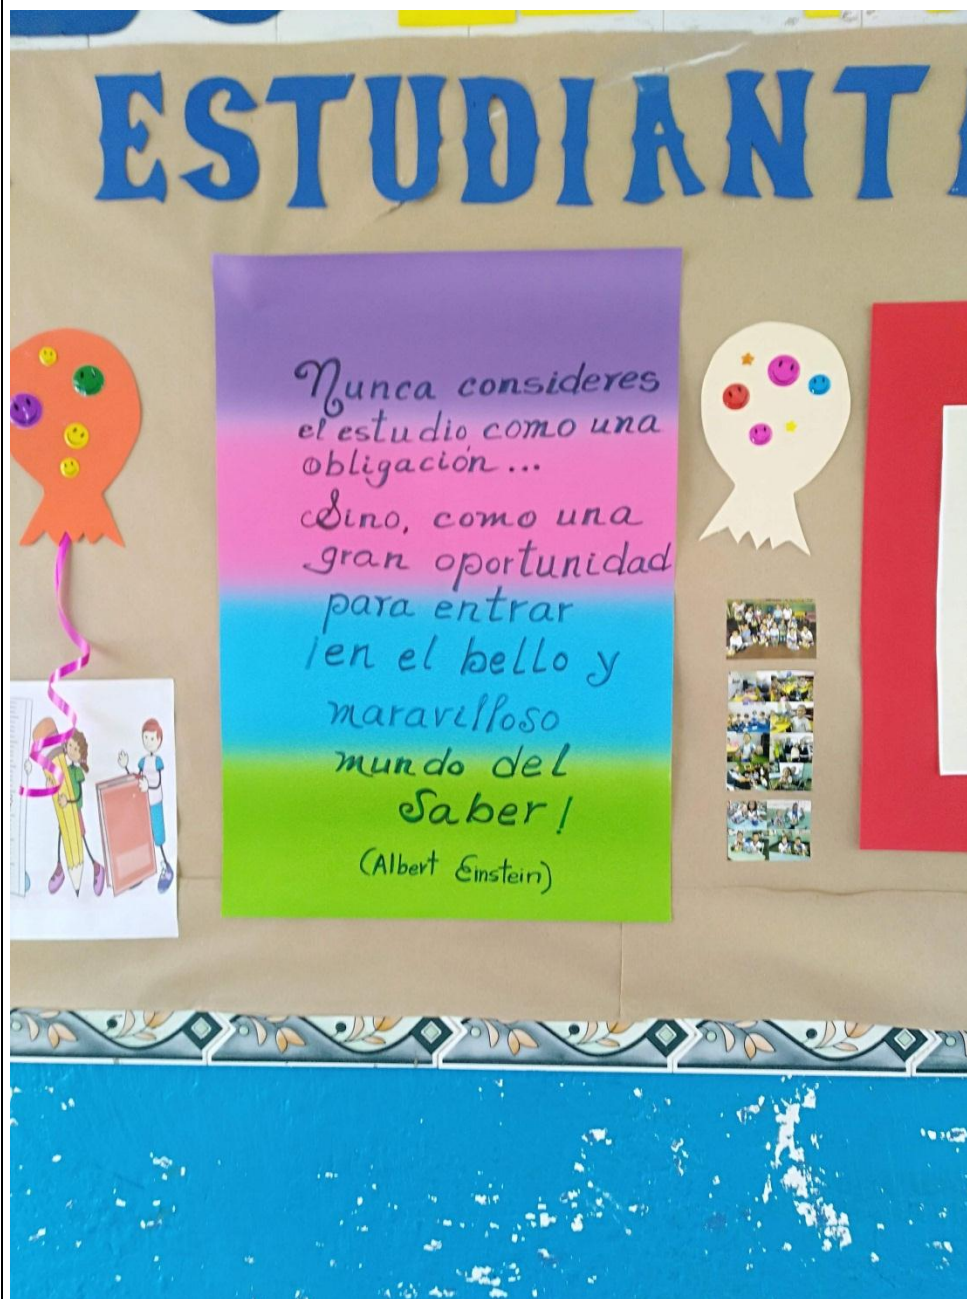 ESTUDIANT
Nunca consideres
el estudio como una
obligación...
Sino, como una
gran oportunidad
para entrar
en el bello y
maravilloso
mundo del
Saber!
(Albert Einstein)